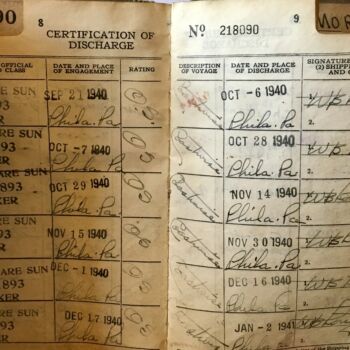 90
8
CERTIFICATION OF
DISCHARGE
OFFICIAL
D CLASS
DATE AND PLACE
OF ENGAGEMENT
RATING
ARE SUN
893
KER
SEP 21 1940
Phila. Pa
RE SUN
1893
KER
OCT - 7 1940
Phila. Pa
ARE SUN
1893
KER
OCT 29 1940
Phila. Pa.
ARE SUN
893
KER
NOV 15 1940
Phila. Pa.
ARE SUN
893
KER
DEC - 1 1940
Phila Pa
ARE SUN
893
KER
DEC 17 1940
Phila Pa
9
Nº 218090
NO F
DESCRIPTION
OF VOYAGE
DATE AND PLACE
OF DISCHARGE
SIGNATURE
(2) SHIPPI
AND C
Coastwise
OCT - 6 1940
Phila. Pa
2.
Coastwise
OCT 28 1940
Phila. Pa
2.
Coastwise
NOV 14 1940
Phila. Pa
2.
Coastwise
NOV 30 1940
Phila. Pa
2.
Coastwise
DEC 16 1940
Phila. Pa
2.
Coastwise
JAN - 2 1941
Phila. Pa